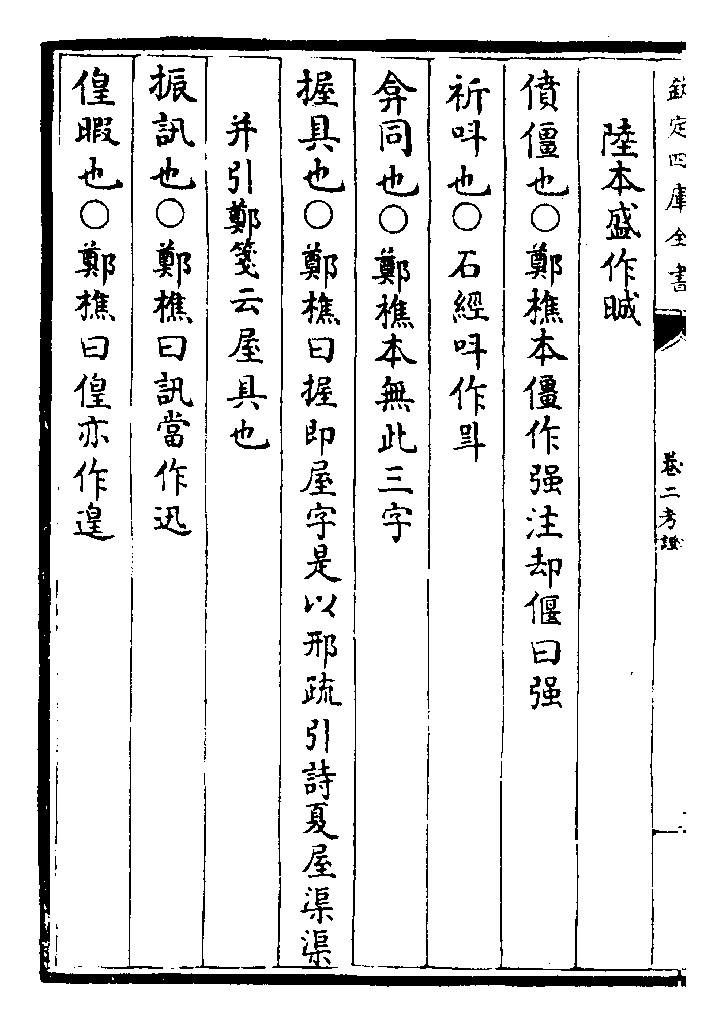 欽定四庫全書
卷二考證
陸本盛作晠
僨僵也○鄭樵本僵作强注却偃曰强
祈呌也○石經呌作嘂
弇同也○鄭樵本無此三字
握具也○鄭樵曰握即屋字是以邢疏引詩夏屋渠渠
并引鄭箋云屋具也
振訊也○鄭樵曰訊當作迅
偟暇也○鄭樵曰偟亦作遑